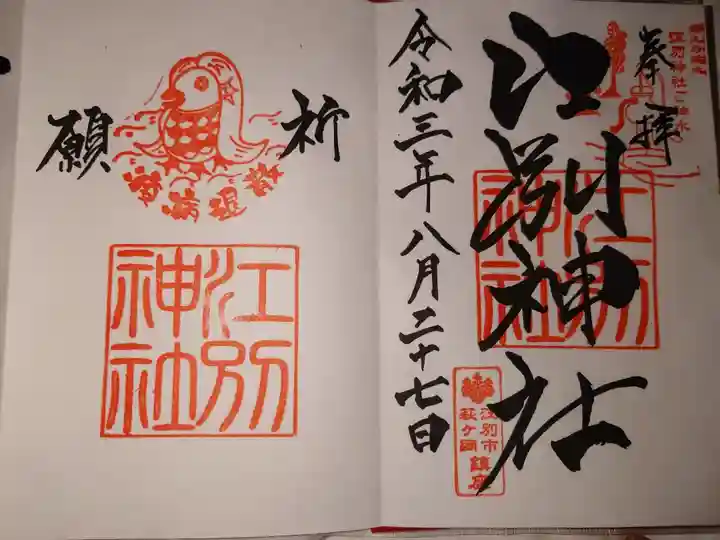 奉拝
江別神社
江別神社
江別市
萩ケ岡
鎮座
令和三年八月二十七日
祈願
疫病退散
江別
神社